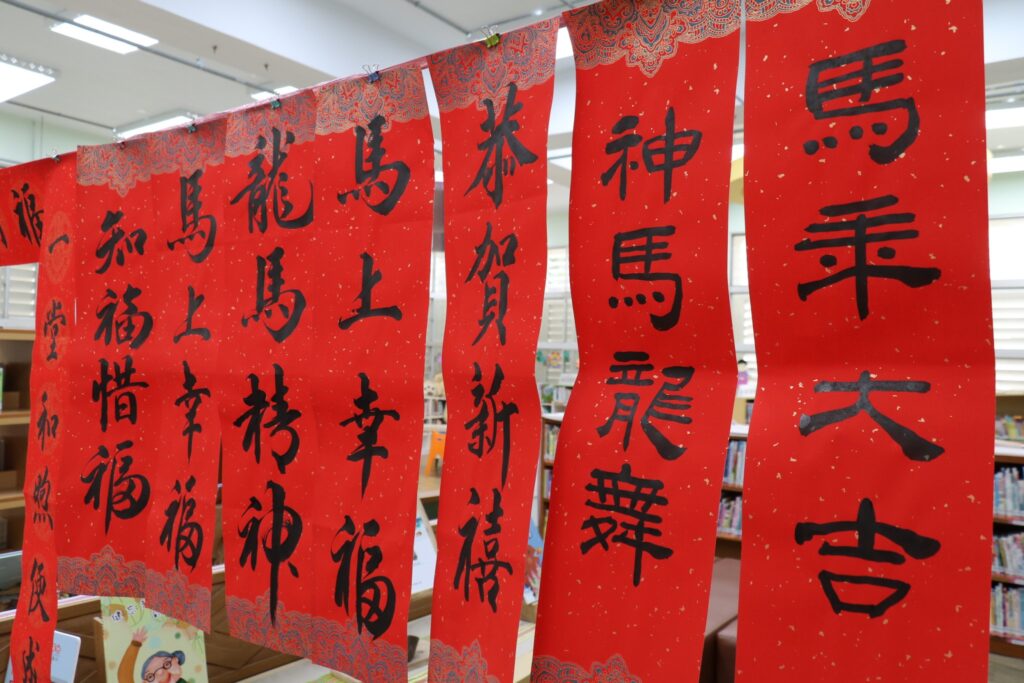 馬年大吉
神馬龍舞
恭賀新禧
馬上幸福
龍馬精神
馬上幸福
知福惜福
一堂和煦便
福